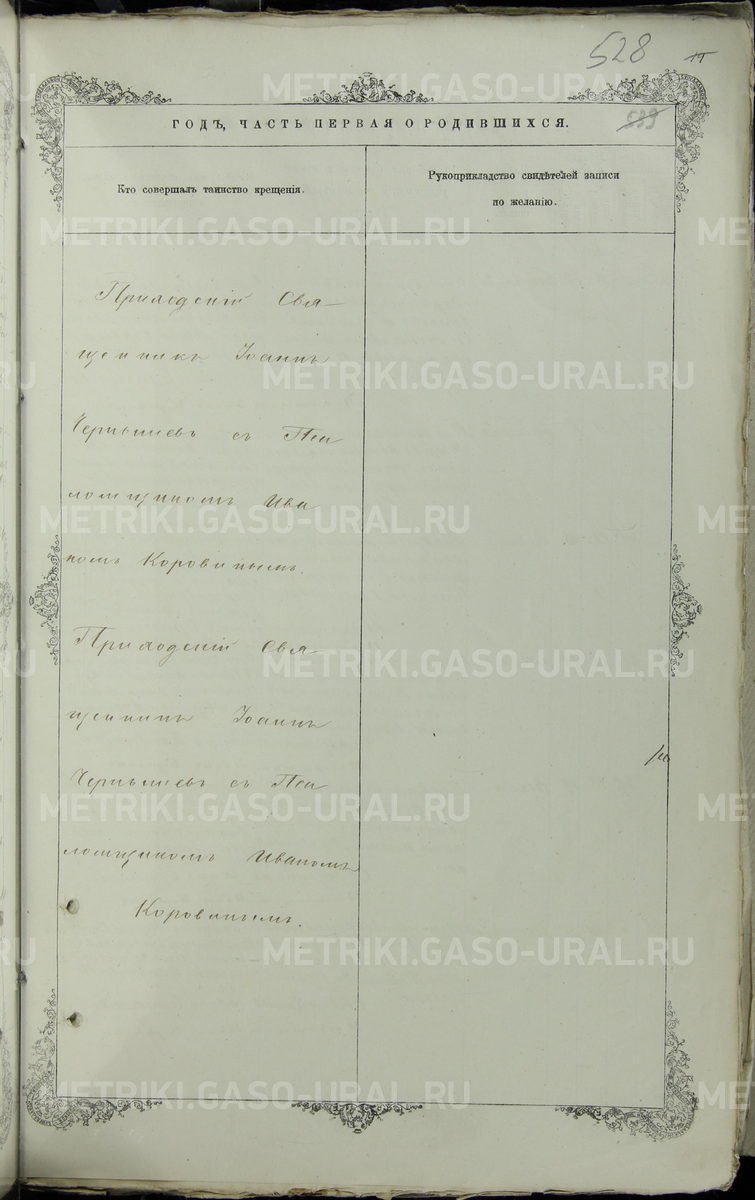 528
11
533
ГОДЪ, ЧАСТЬ ПЕРВАЯ О РОДИВШИХСЯ.
Кто совершалъ таинство крещенія.
Рукоприкладство свидѣтелей записи
по желанію.
Приходскій Свя-
щенникъ Іоаннъ
Чернышевъ съ Пса
ломщикомъ Ива
номъ Коровинымъ.
Приходскій Свя-
щенникъ Іоаннъ
Чернышевъ съ Пса
ломщикомъ Иваномъ
Коровинымъ.
METRIKI.GASO-URAL.RU